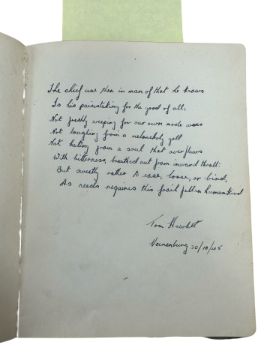 The chief use then in man of that he knows
Is his painstaking for the good of all:
Not fleshly weeping for our own made woes
Not laughing from a melancholy gall
Not hating from a soul that overflows
With bitterness, breathed out from inward thrall:
But sweetly rather to ease, loose, or bind,
As need requires this frail fallen humankind
Tom